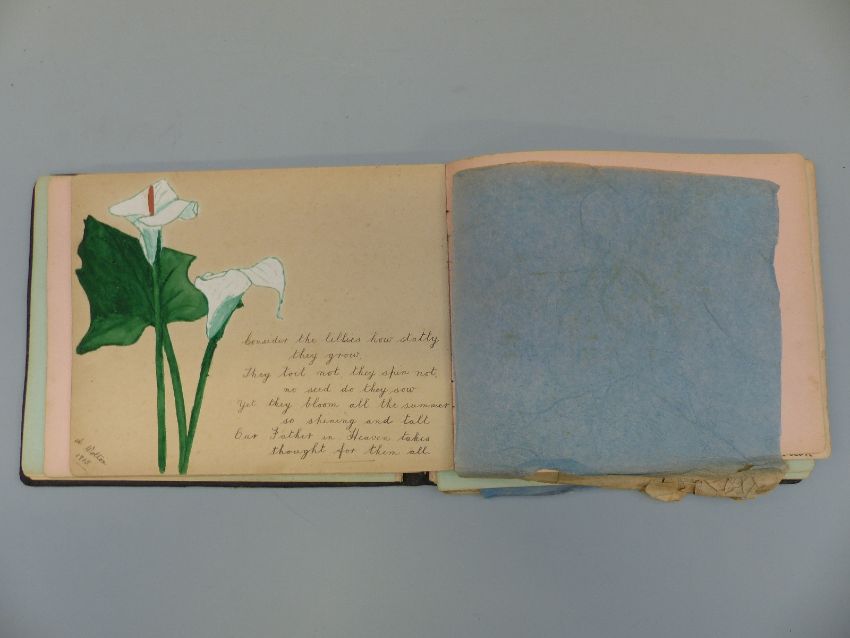 Consider the lillies how statly
they grow,
They toil not they spin not,
no seed do they sow
Yet they bloom all the summer
so shining and tall
Our Father in Heaven takes
thought for them all
Wolton
1915